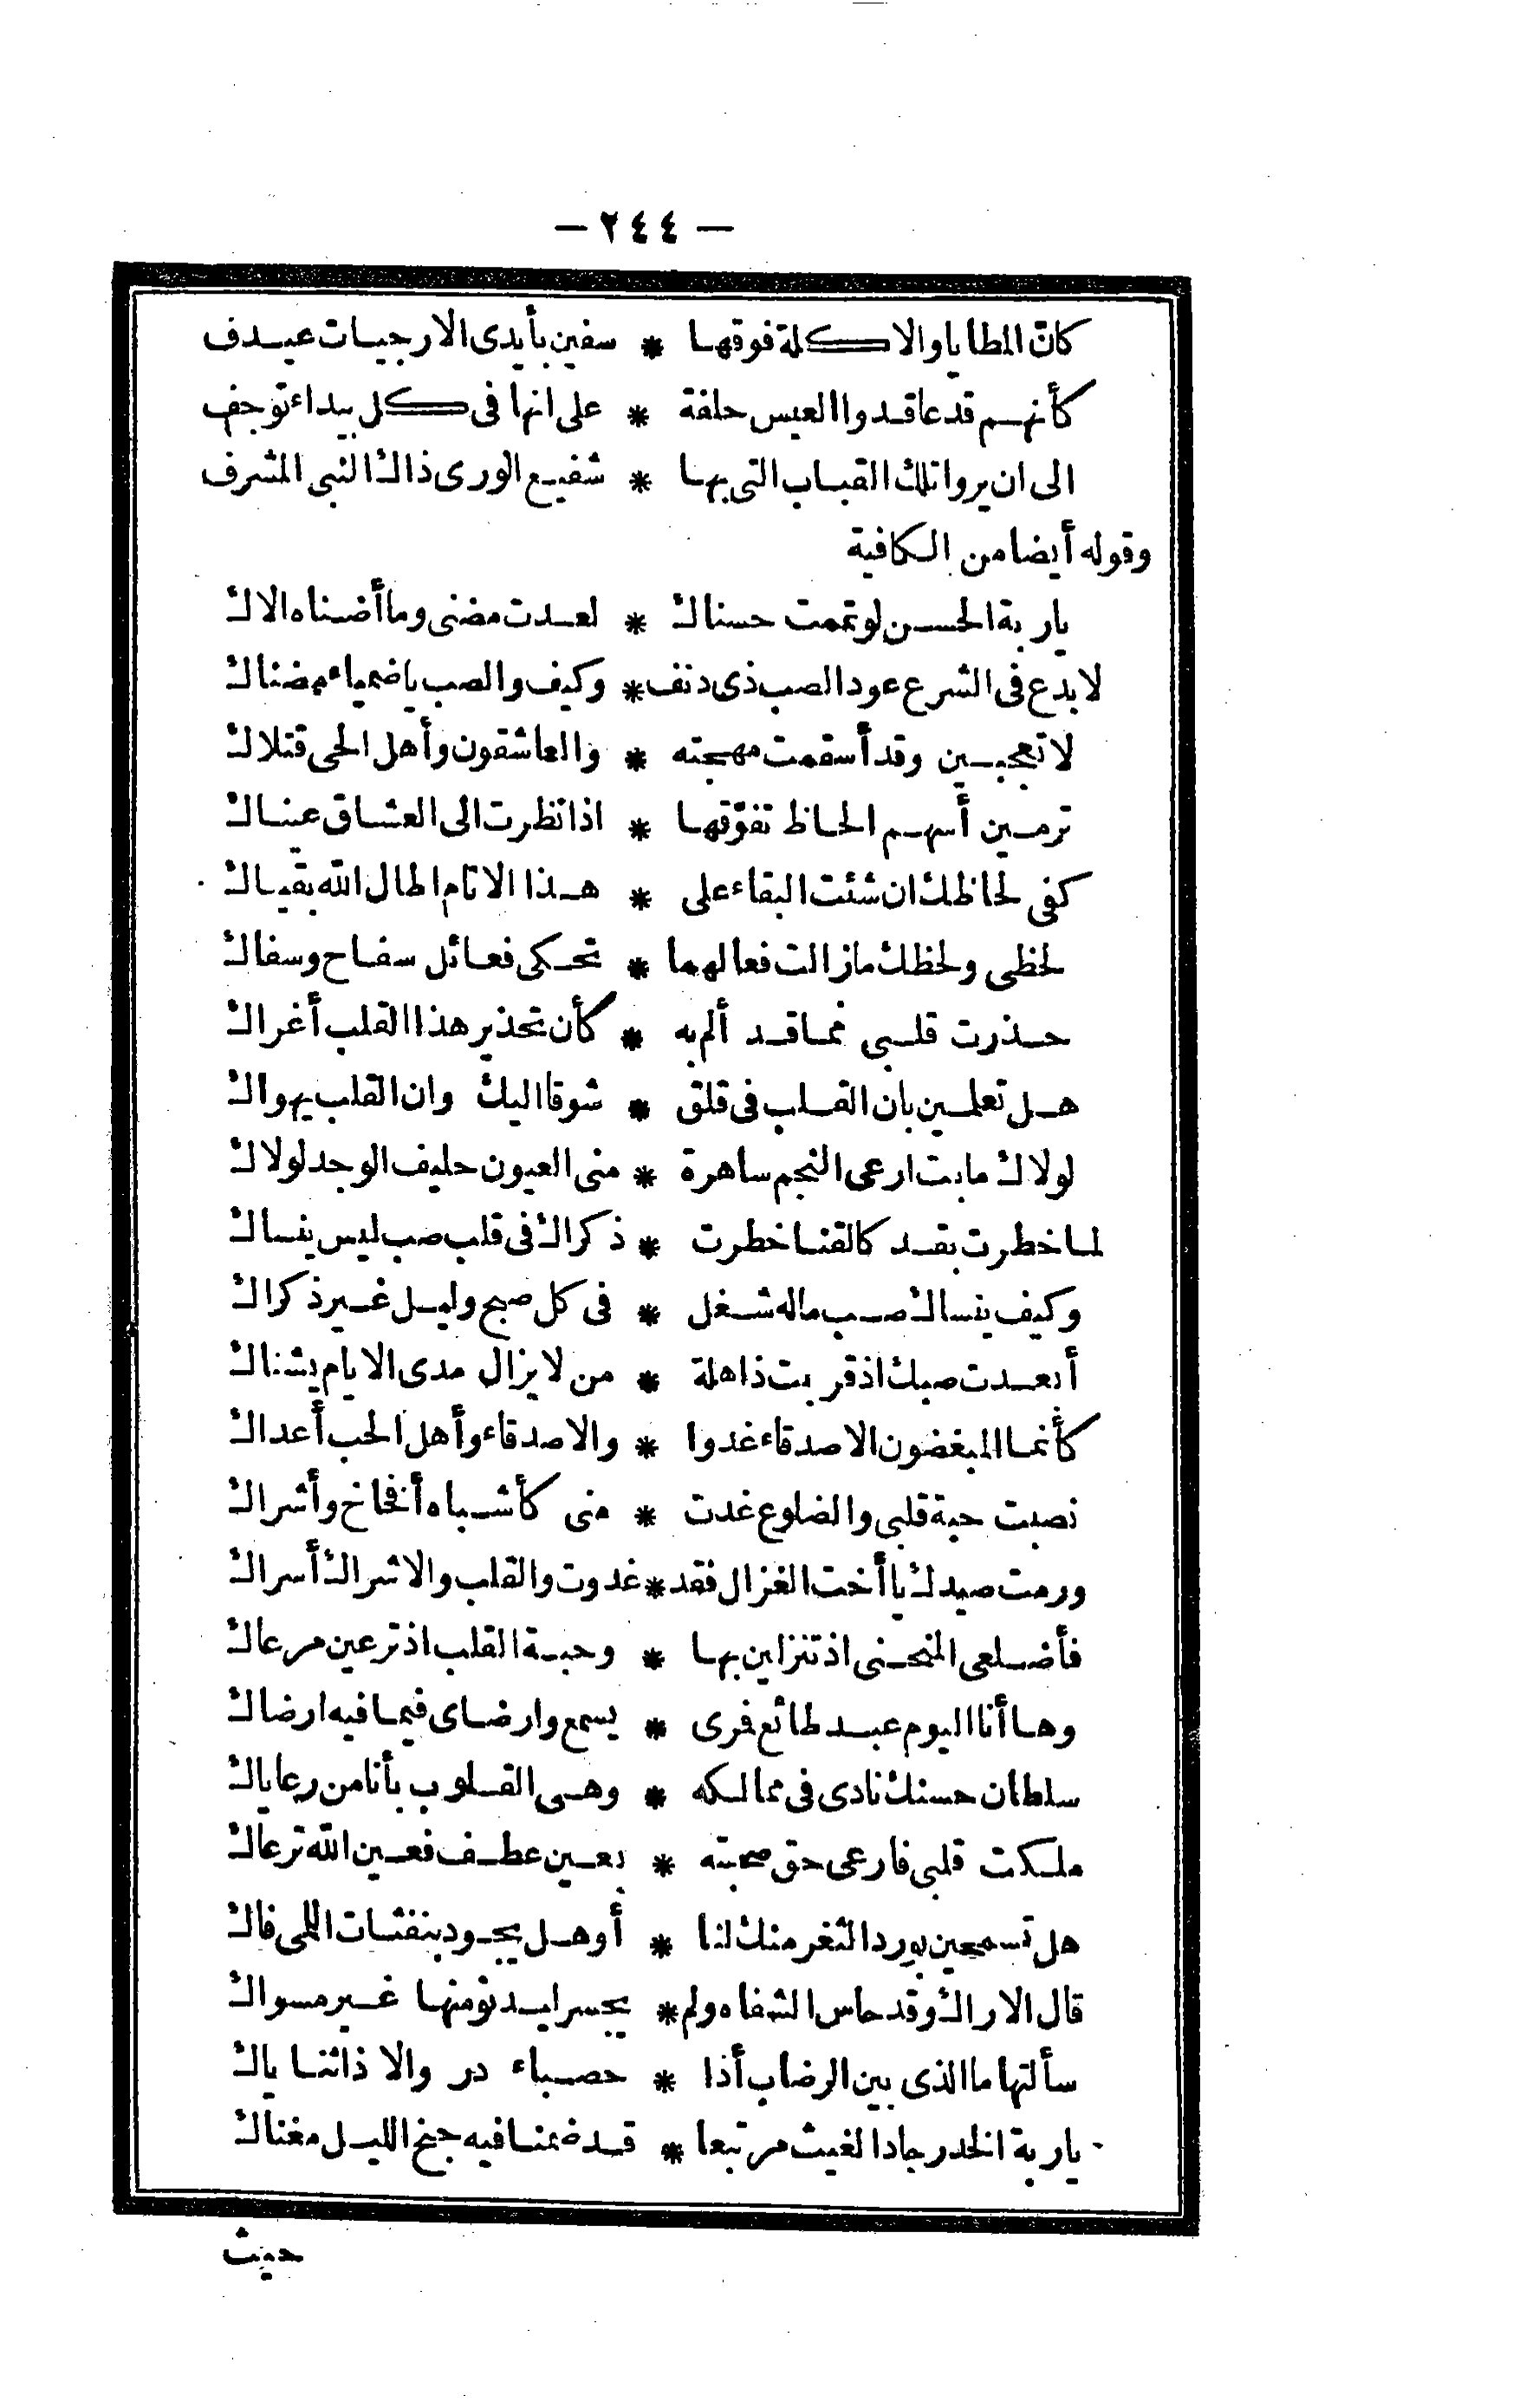 — ٢٤٤ —
كانّ المطايا والاكلة فوقها * سفين بأيدى الارجيات عيدف
كأنهم قد عاقدوا العيس حلفة * على انها فى كل بيداء توجف
الى ان يروا تلك القباب التى بها * شفيع الورى ذاك النبى المشرف
وقوله أيضا من الكافية
يا ربة الحسن لو تممت حسناك * لعدت مضنى وما أضناه الاك
لا بدع فى الشرع عود الصب ذى دنف * وكيف والصب يا ضمياء مضناك
لا تعجبين وقد أسقمت مهجته * والعاشقون وأهل الحى قتلاك
ترمين أسهم الحاظ تفوّقها * اذا نظرت الى العشاق عيناك
كفى لحاظك ان شئت البقاء على * هذا الانام اطال الله بقياك
لحظى ولحظك ما زالت فعالهما * تحكى فعائل سفاح وسفاك
حذرت قلبى مما قد ألم به * كأن تحذير هذا القلب أغراك
هل تعلمين بان القلب فى قلق * شوقا اليك وان القلب يهواك
لولاك ما بت ارعى النجم ساهرة * منى العيون حليف الوجد لولاك
لما خطرت بقد كالقنا خطرت * ذكراك فى قلب صب ليس ينساك
وكيف ينساك صب ماله شغل * فى كل صبح وليل غير ذكراك
أبعدت صبك اذ قربت ذاهلة * من لا يزال مدى الايام يشناك
كأنما المبغضون الاصدقاء غدوا * والاصدقاء وأهل الحب أعداك
نصبت حبة قلبى والضلوع غدت * منى كأشباه أفخاخ وأشراك
ورمت صيدك يا أخت الغزال فقد * غدوت والقلب والاشراك أسراك
فأضلعى المنحنى اذ تنزلين بها * وحبة القلب اذ ترعين مرعاك
وها أنا اليوم عبد طائع فرى * يسمع وارضاى فيما فيه ارضاك
سلطان حسنك نادى فى ممالكه * وهى القلوب بأنا من رعاياك
ملكت قلبى فارعى حق صحبته * بعين عطف فعين الله ترعاك
هل تسمحين بورد الثغر منك لنا * أو هل يجود بنفثات اللمى فاك
قال الاراك وقد حاس الشفاه ولم * يجسر ليدنو منها غير مسواك
سألتها ما الذى بين الرضاب أذا * حصباء در والا ذا ثناياك
يا ربة الخدر جاد الغيث مرتبعا * قد ضمنا فيه جنح الليل مغناك
حيث